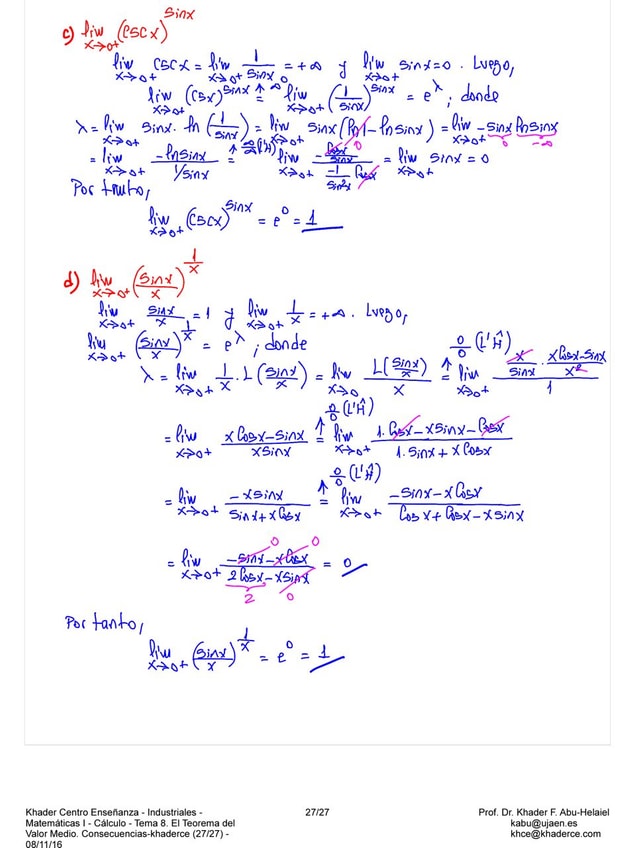 c) lim x→0+ (cscx)^sinx
lim x→0+ cscx = lim x→0+ 1/sinx = +∞ y lim x→0+ sinx=0. Luego,
lim x→0+ (csx)^sinx = lim x→0+ (1/sinx)^sinx = e^λ; donde
λ = lim x→0+ sinx · ln (1/sinx) = lim x→0+ sinx (ln1 - ln sinx) = lim x→0+ -sinx ln sinx
0 0 -∞
= lim x→0+ -ln sinx / 1/sinx = ∞/∞ (L'Ĥ) lim x→0+ (-cosx/sinx) / (-1/sin²x cosx) = lim x→0+ sinx = 0
Por tanto,
lim x→0+ (cscx)^sinx = e^0 = 1
d) lim x→0+ (sinx/x)^1/x
lim x→0+ sinx/x = 1 y lim x→0+ 1/x = +∞. Luego,
lim x→0+ (sinx/x)^1/x = e^λ; donde
0/0 (L'Ĥ)
λ = lim x→0+ 1/x · L(sinx/x) = lim x→0 L(sinx/x) / x = lim x→0+ (x/sinx · xcosx-sinx/x²) / 1
0/0 (L'Ĥ)
= lim x→0+ xcosx-sinx / xsinx = lim x→0+ 1·cosx - xsinx - cosx / 1·sinx + xcosx
0/0 (L'Ĥ)
= lim x→0+ -xsinx / sinx+xcosx = lim x→0+ -sinx-xcosx / cosx+cosx-xsinx
0 0
= lim x→0+ -sinx-xcosx / 2cosx-xsinx = 0
2 0
Por tanto,
lim x→0+ (sinx/x)^1/x = e^0 = 1
Khader Centro Enseñanza - Industriales -
Matemáticas I - Cálculo - Tema 8. El Teorema del
Valor Medio. Consecuencias-khaderce (27/27) -
08/11/16
27/27
Prof. Dr. Khader F. Abu-Helaiel
kabu@ujaen.es
khce@khaderce.com